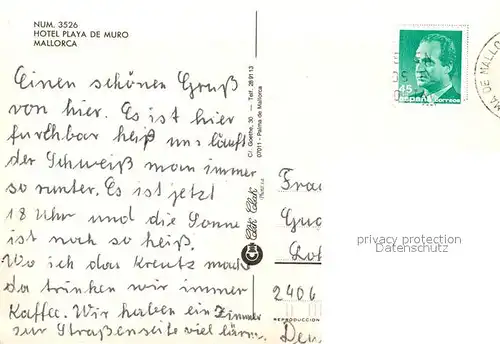 NUM. 3526
HOTEL PLAYA DE MURO
MALLORCA
Einen schönen Gruß
von hier. Es ist hier
furchbar heiß uns läuft
der Schweiß man immer
so runter. Es ist jetzt
18 Uhr und die Sonne
ist noch so heiß.
Wo ich das Kreutz mache
da trinken wir immer
Kaffee. Wir haben ein Zimmer
zur Straßenseite viel lärm.
C/. Goethe, 30 — Telf. 28 91 13
07011 - Palma de Mallorca
Click Click
45
ESPAÑA CORREOS
MA DE MALLO
privacy protection
Datenschutz
Frau
2406
REPRODUCCION